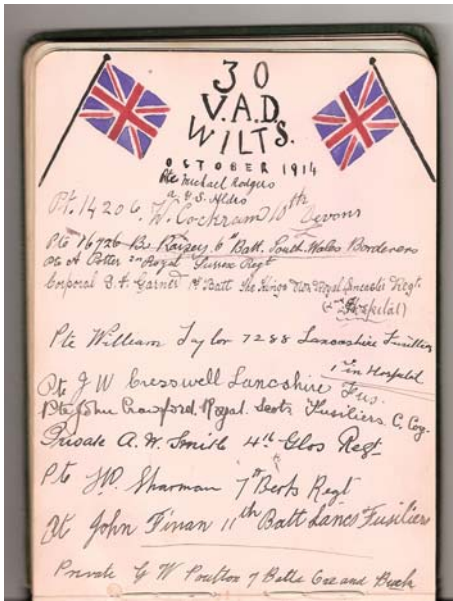 30
V.A.D.
WILTS.
OCTOBER 1914
Pte Michael Rodgers
a. & S. Hldrs
Pt. 14206. W. Cockram 10th Devons
Pte 16726 Raizey 6th Batt. South Wales Borderers
Pte A Potter 2nd Royal Sussex Regt
Corporal Garner 1st Batt The Kings Own Royal Lancaster Regt.
Hospital)
Pte William Taylor 7288 Lancashire Fusiliers
1st in Hospital
Pte J W Cresswell Lancshire Fus.
Pte John Crawford. Royal. Scots Fusiliers C. Coy.
Private A. W. Smith 4th Glos Regt
Pte Sharman 7th Berks Regt
Pt John Finan 11th Batt Lancs Fusiliers
Private G W Poulton 7 Batts Oxe and Buck